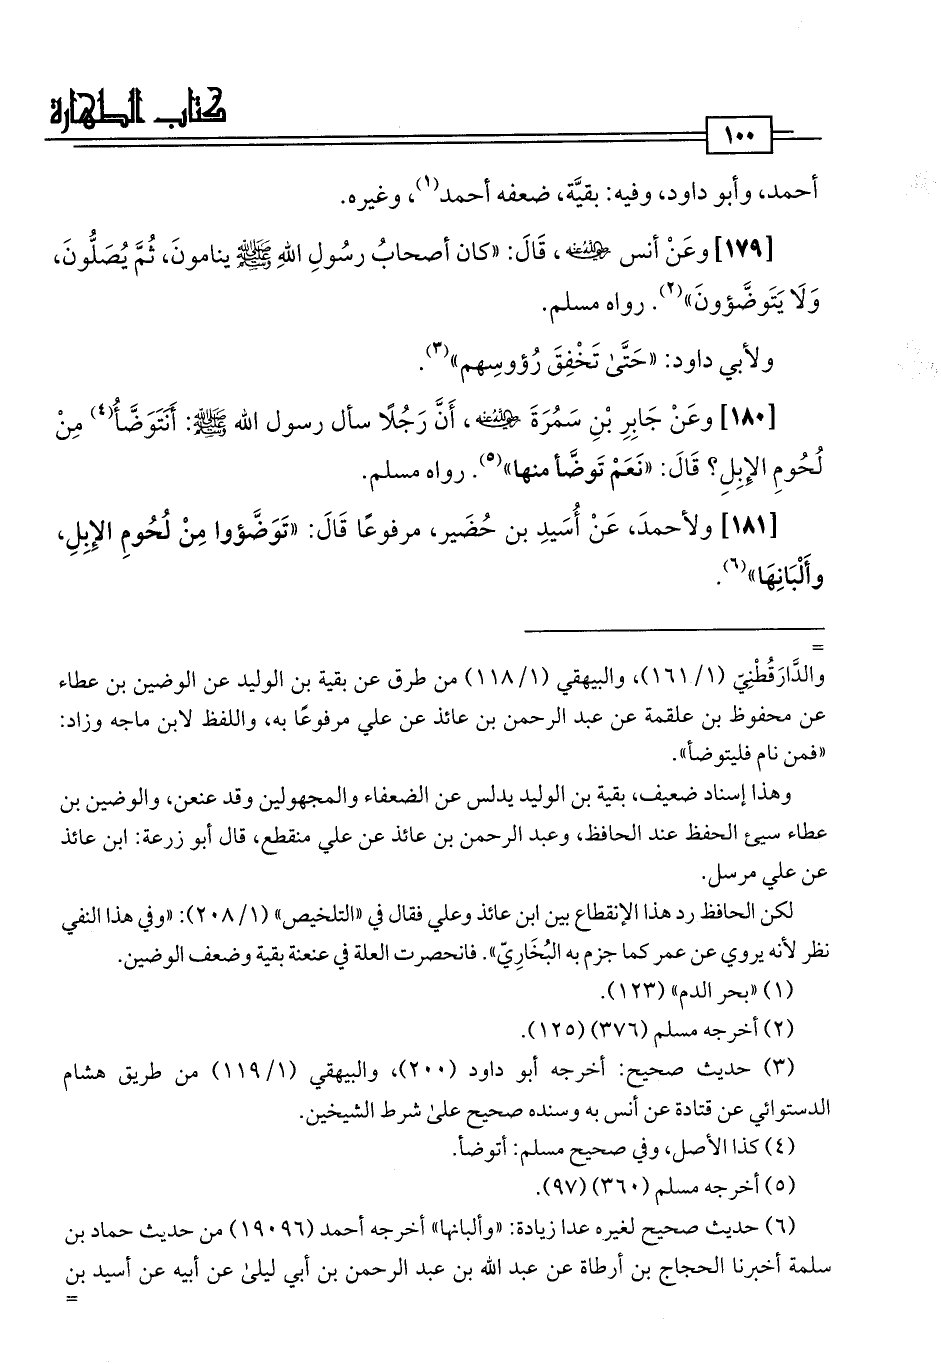 كتاب الطهارة
١٠٠
أحمد، وأبو داود، وفيه: بقيَّة، ضعفه أحمد(١)، وغيره.
[١٧٩] وعَنْ أنس رضي الله عنه، قَالَ: «كان أصحابُ رسُولِ اللهِ ﷺ ينامونَ، ثُمَّ يُصَلُّونَ،
وَلَا يَتَوضَّؤونَ»(٢). رواه مسلم.
ولأبي داود: «حَتَّىٰ تَخْفِقَ رُؤوسِهم»(٣).
[١٨٠] وعَنْ جَابِرِ بْنِ سَمُرَةَ رضي الله عنه، أَنَّ رَجُلًا سأل رسول الله ﷺ: أَنَتَوَضَّأُ(٤) مِنْ
لُحُومِ الإِبِلِ؟ قَالَ: «نَعَمْ تَوضَّأ منها»(٥). رواه مسلم.
[١٨١] ولأحمدَ، عَنْ أُسَيدِ بن حُضَير، مرفوعًا قَالَ: «تَوَضَّؤوا مِنْ لُحُومِ الإِبِلِ،
وأَلْبَانِهَا»(٦).
=
والدَّارَقُطْنِيّ (١/ ١٦١)، والبيهقي (١/ ١١٨) من طرق عن بقية بن الوليد عن الوضين بن عطاء
عن محفوظ بن علقمة عن عبد الرحمن بن عائذ عن علي مرفوعًا به، واللفظ لابن ماجه وزاد:
«فمن نام فليتوضأ».
وهذا إسناد ضعيف، بقية بن الوليد يدلس عن الضعفاء والمجهولين وقد عنعن، والوضين بن
عطاء سيئ الحفظ عند الحافظ، وعبد الرحمن بن عائذ عن علي منقطع، قال أبو زرعة: ابن عائذ
عن علي مرسل.
لكن الحافظ رد هذا الإنقطاع بين ابن عائذ وعلي فقال في «التلخيص» (١/ ٢٠٨): «وفي هذا النفي
نظر لأنه يروي عن عمر كما جزم به البُخَارِيّ». فانحصرت العلة في عنعنة بقية وضعف الوضين.
(١) «بحر الدم» (١٢٣).
(٢) أخرجه مسلم (٣٧٦) (١٢٥).
(٣) حديث صحيح: أخرجه أبو داود (٢٠٠)، والبيهقي (١/ ١١٩) من طريق هشام
الدستوائي عن قتادة عن أنس به وسنده صحيح علىٰ شرط الشيخين.
(٤) كذا الأصل، وفي صحيح مسلم: أتوضأ.
(٥) أخرجه مسلم (٣٦٠) (٩٧).
(٦) حديث صحيح لغيره عدا زيادة: «وألبانها» أخرجه أحمد (١٩٠٩٦) من حديث حماد بن
سلمة أخبرنا الحجاج بن أرطاة عن عبد الله بن عبد الرحمن بن أبي ليلىٰ عن أبيه عن أسيد بن
=